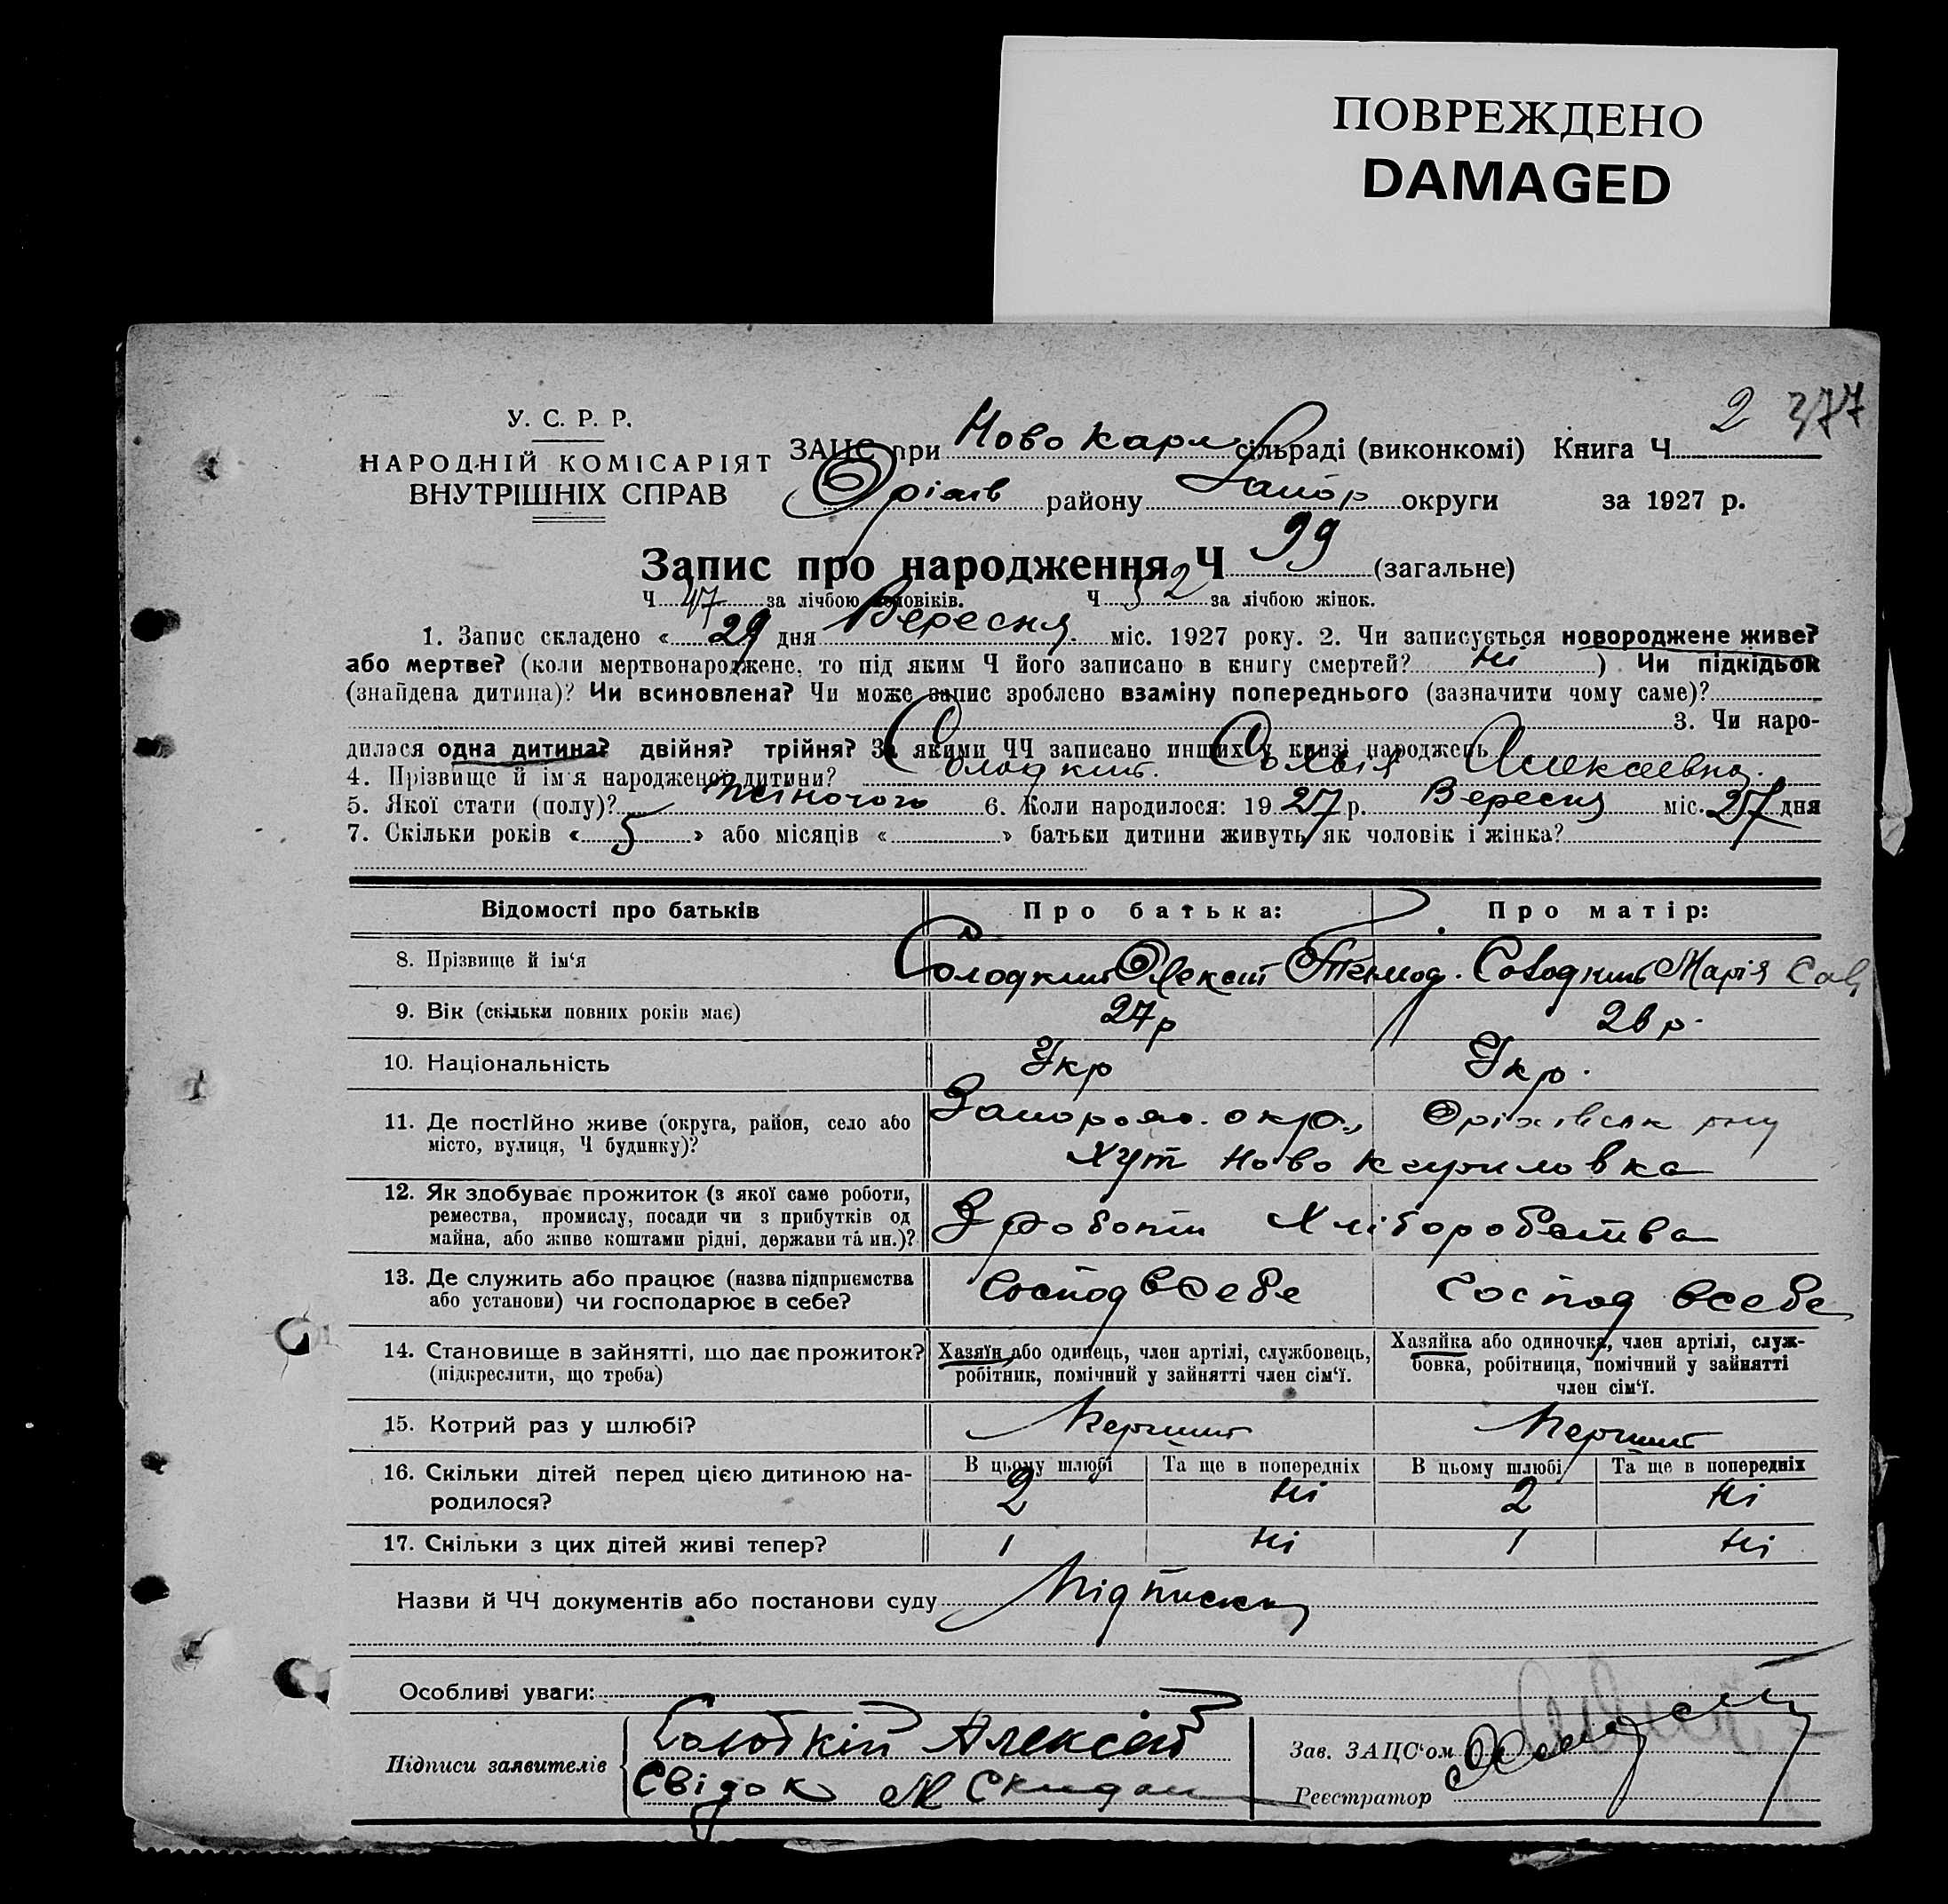 ПОВРЕЖДЕНО
DAMAGED
2 377
У. С. Р. Р.
НАРОДНІЙ КОМІСАРІЯТ
ВНУТРІШНІХ СПРАВ
ЗАЦС при Ново Карл сільраді (виконкомі) Книга Ч
Оріхів району Запор округи за 1927 р.
Запис про народження Ч 99 (загальне)
Ч 47 за лічбою чоловіків. Ч 52 за лічбою жінок.
1. Запис складено « 29 дня Вересня міс. 1927 року. 2. Чи записується новороджене живе?
або мертве? (коли мертвонароджене, то під яким Ч його записано в книгу смертей? Ні ) Чи підкідьок
(знайдена дитина)? Чи всиновлена? Чи може запис зроблено взаміну попереднього (зазначити чому саме)?
3. Чи наро-
дилася одна дитина? двійня? трійня? За якими ЧЧ записано инших у книзі народжень
4. Прізвище й ім'я народженої дитини? Солодкий. Софія Алексеевна.
5. Якої стати (полу)? жіночого 6. Коли народилося: 1927 р. Вересня міс. 27 дня
7. Скільки років « 5 » або місяців « » батьки дитини живуть як чоловік і жінка?
Відомості про батьків Про батька: Про матір:
8. Прізвище й ім'я Солодкий Олексій Солодкий Марія Сав
9. Вік (скільки повних років має) 27 р 26 р.
10. Національність Укр Укр.
11. Де постійно живе (округа, район, село або
місто, вулиця, Ч будинку)?
Запорож. окр., Оріхівськ рну
Хут Ново Карловка
12. Як здобуває прожиток (з якої саме роботи,
ремества, промислу, посади чи з прибутків од
майна, або живе коштами рідні, держави та ин.)?
З роботи Хліборобства
13. Де служить або працює (назва підприємства
або установи) чи господарює в себе?
Господ в себе Господ в себе
14. Становище в зайнятті, що дає прожиток?
(підкреслити, що треба)
Хазяїн або одинець, член артілі, службовець,
робітник, помічний у зайнятті член сім'ї.
Хазяйка або одиночка, член артілі, служ-
бовка, робітниця, помічний у зайнятті
член сім'ї.
15. Котрий раз у шлюбі? Перший Перший
16. Скільки дітей перед цією дитиною на-
родилося?
В цьому шлюбі Та ще в попередніх В цьому шлюбі Та ще в попередніх
2 Ні 2 Ні
17. Скільки з цих дітей живі тепер? 1 Ні 1 Ні
Назви й ЧЧ документів або постанови суду Підписки
Особливі уваги:
Підписи заявителів
Солодкій Алексей
Свідок М Скидан
Зав. ЗАЦС'ом
Реєстратор